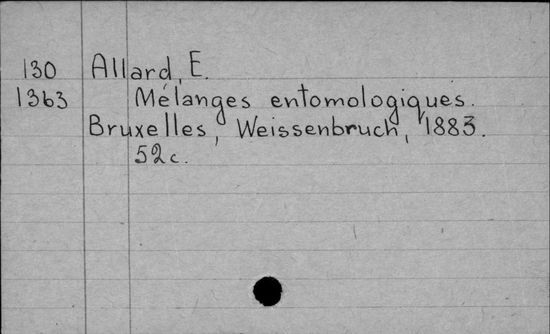 130 Allard, E.
1363 Mélanges entomologiques.
Bruxelles, Weissenbruch, 1883.
52c.